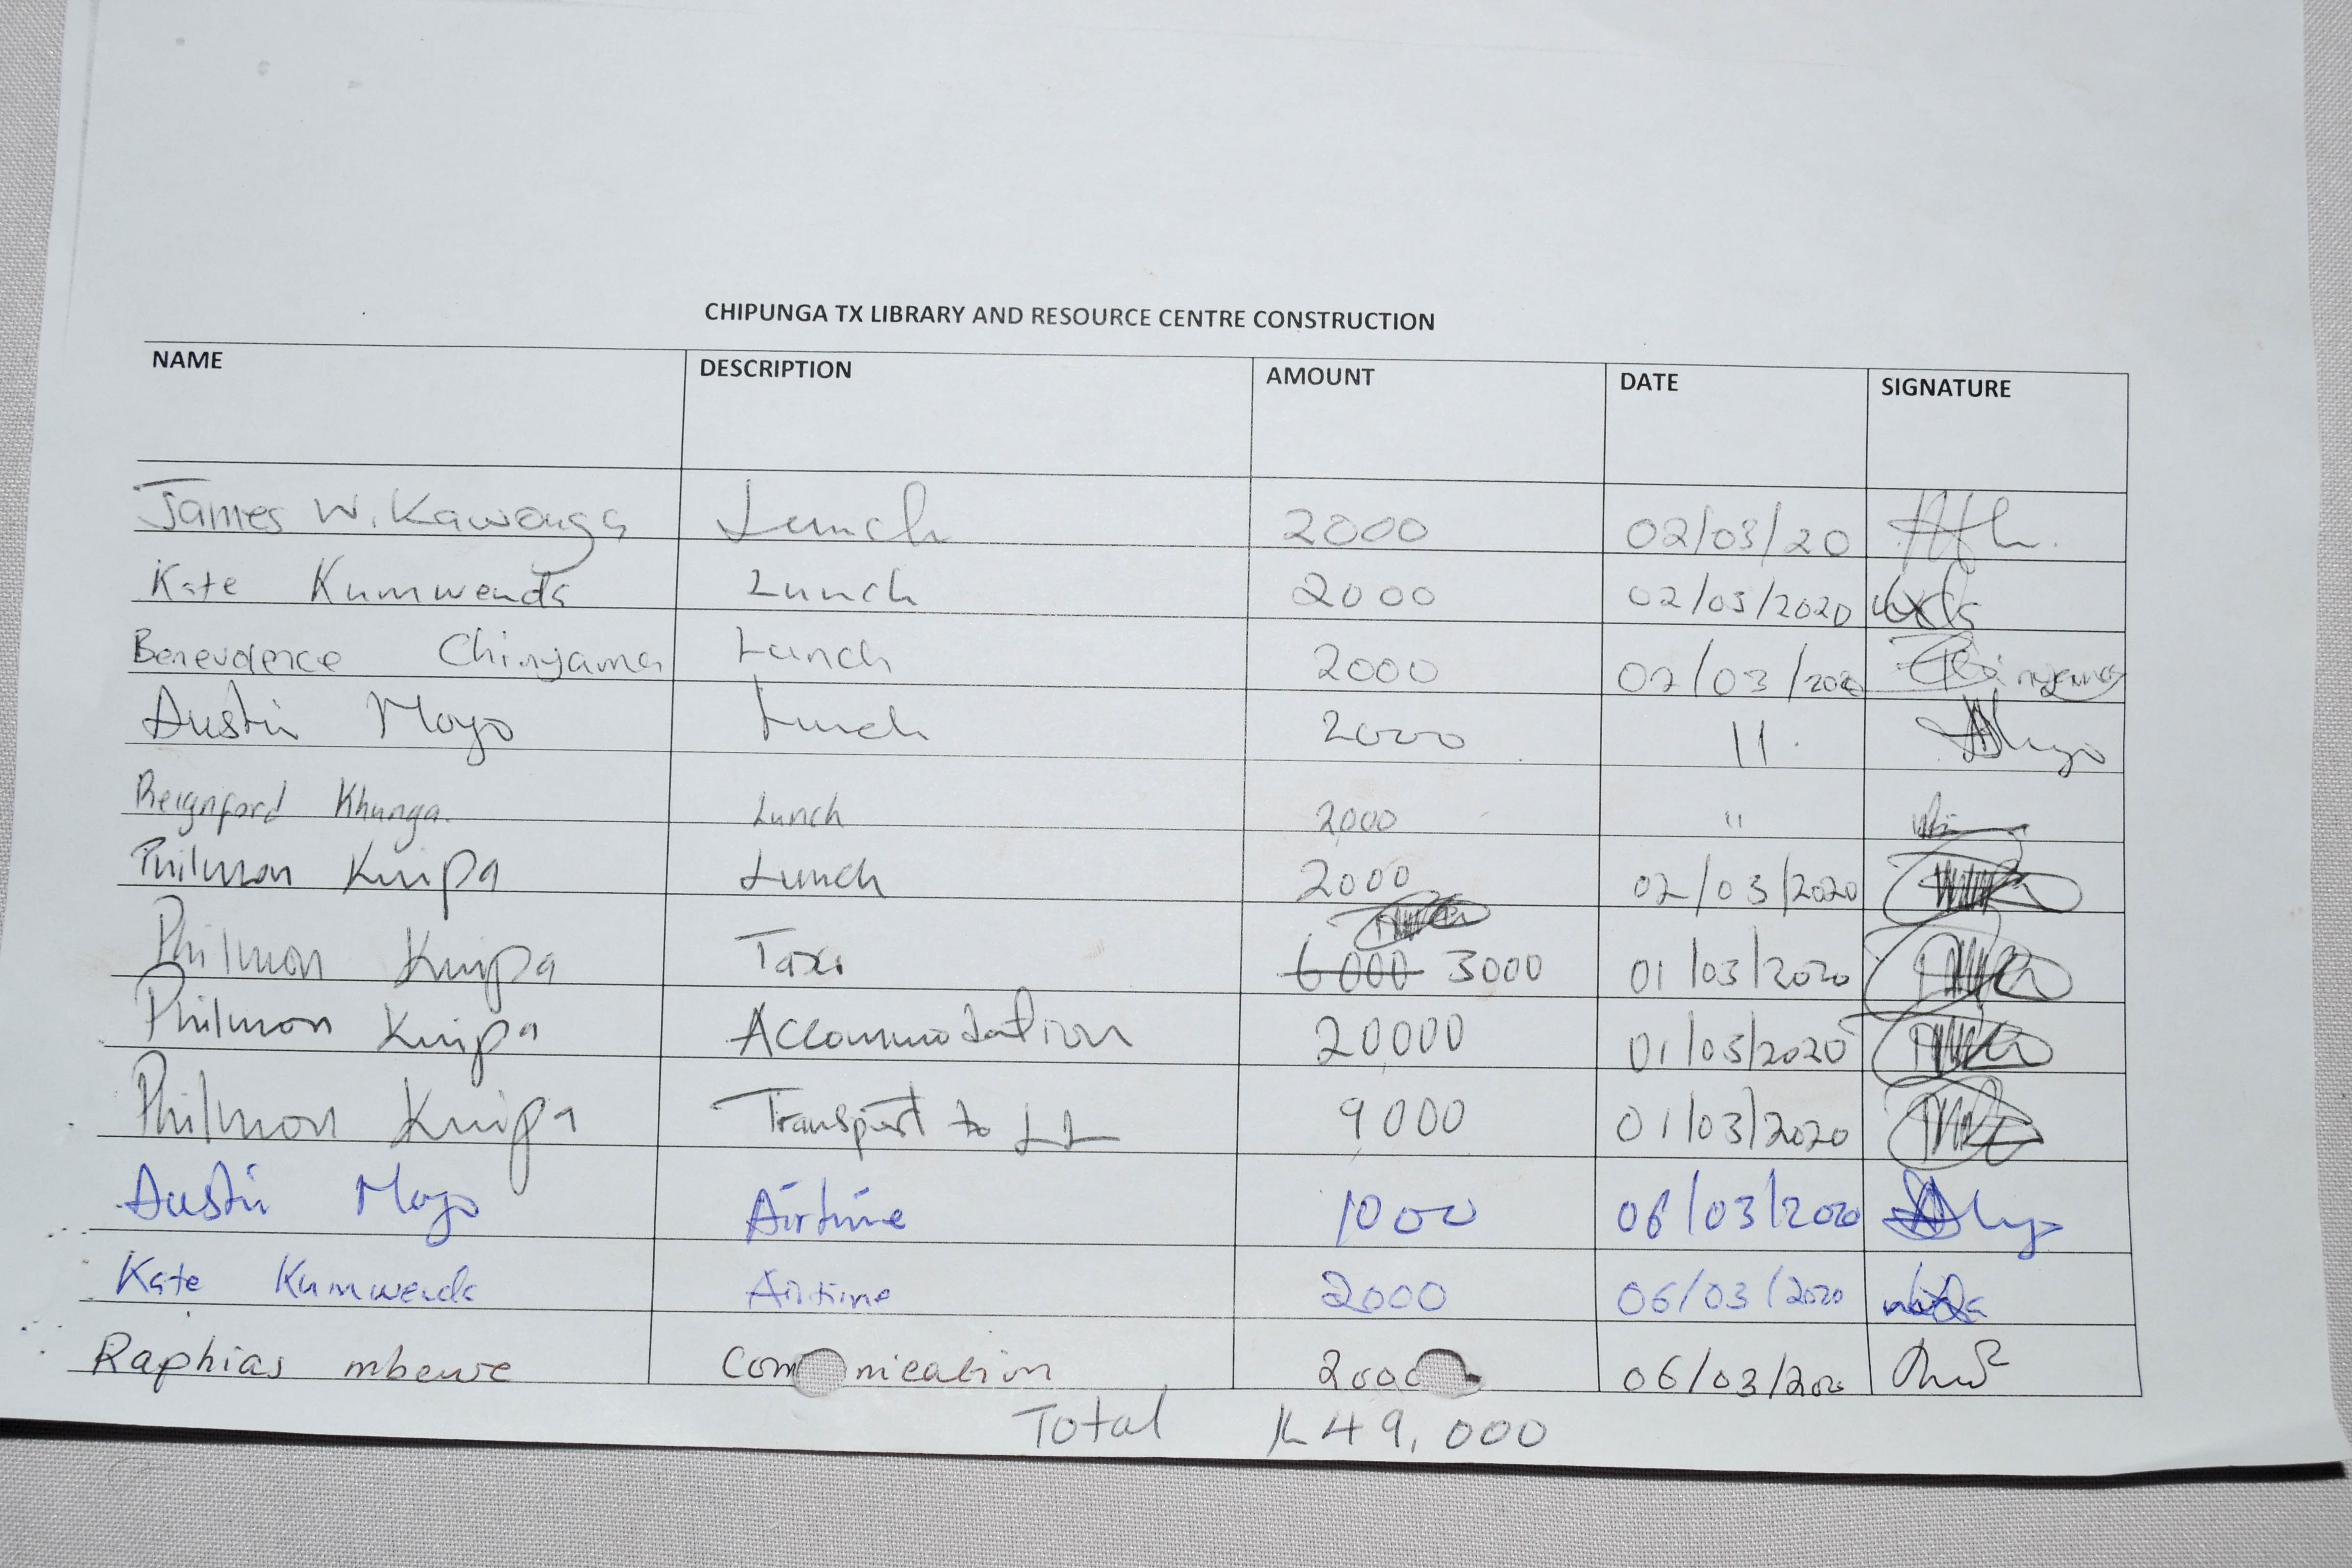 CHIPUNGA TX LIBRARY AND RESOURCE CENTRE CONSTRUCTION
NAME DESCRIPTION AMOUNT DATE SIGNATURE
James W. Kawonga Lunch 2000 02/03/20
Kate Kumwenda Lunch 2000 02/03/2020
Benevdence Chinyama Lunch 2000 02/03/2020
Austin Moyo Lunch 2000 11.
Reignford Khunga. Lunch 2000 "
Philmon Knipa Lunch 2000 02/03/2020
Philmon Knipa Taxi 6000 3000 01/03/2020
Philmon Knipa Accommodation 20000 01/03/2020
Philmon Knipa Transport to LL 9000 01/03/2020
Austin Moyo Airtime 1000 06/03/2020
Kate Kumwenda Airtime 2000 06/03/2020
Raphias mbewe Com nication 2000 06/03/2020
Total K49,000